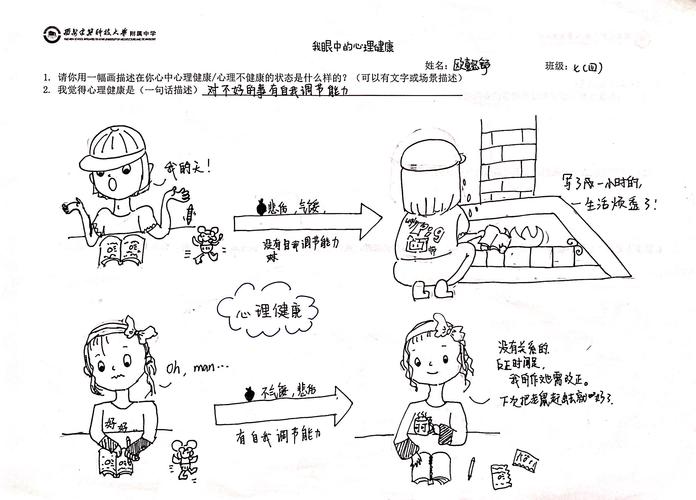 西安建筑科技大学 附属中学
我眼中的心理健康
姓名:
班级: 七(四)
1. 请你用一幅画描述在你心中心理健康/心理不健康的状态是什么样的?(可以有文字或场景描述)
2. 我觉得心理健康是(一句话描述) 对不好的事有自我调节能力
我的天!
悲伤,气馁,
没有自我调节能力
写了一小时的,
一生活烦透了!
心理健康
Oh, man...
不气馁,悲伤
有自我调节能力
好好
没有关系的,
反正时间足,
我的作业也需改正。
下次把老鼠赶走就好了